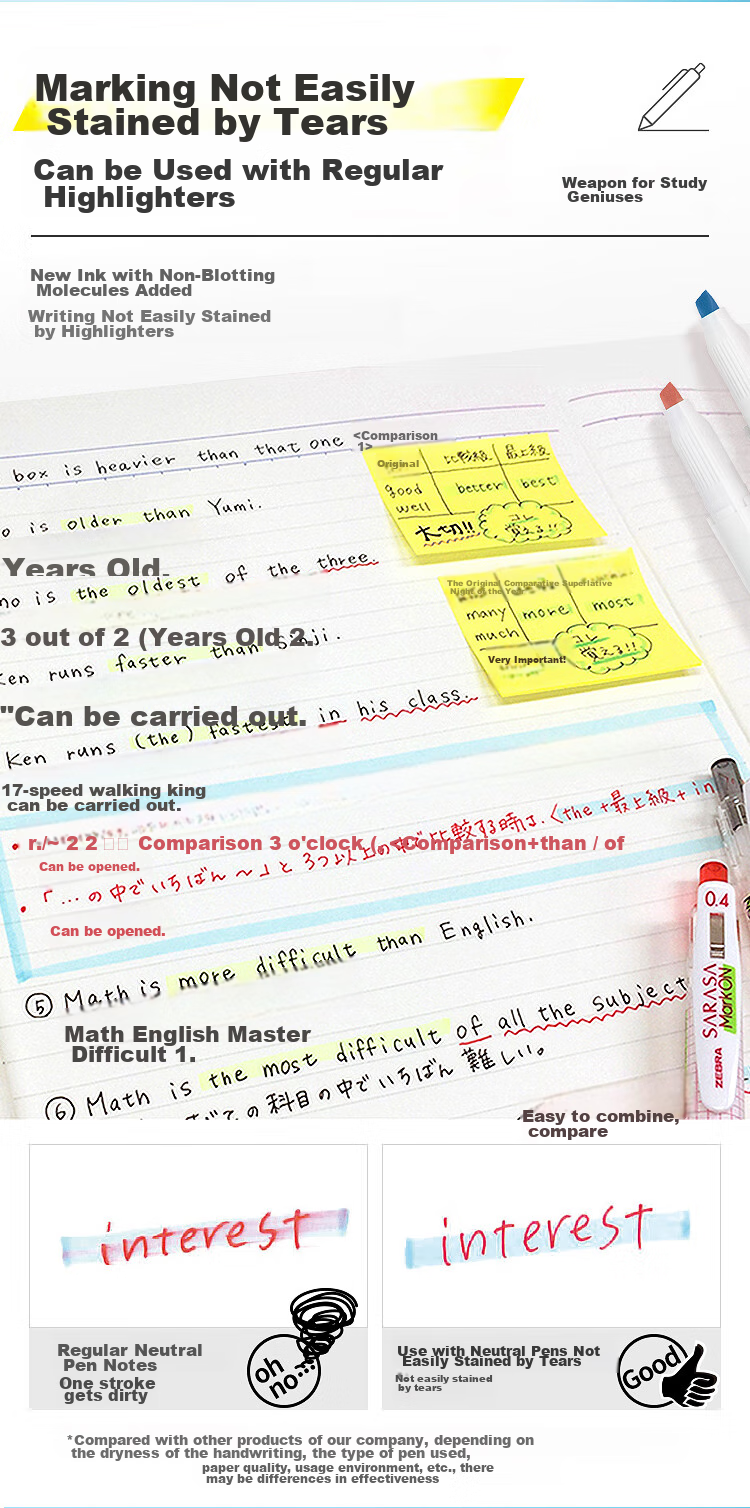 Marking Not Easily
Stained by Tears
Can be Used with Regular
Highlighters
Weapon for Study
Geniuses
New Ink with Non-Blotting
Molecules Added
Writing Not Easily Stained
by Highlighters
box is heavier than that one
<Comparison
1>
Original
比較級
最上級
good
well
better
best
大切!!
コレ
覚える!!
o is older than Yumi.
Years Old.
no is the oldest of the three.
The Original Comparative Superlative
Night of the Year
many
much
more
most
Very Important!
コレ
覚える!!
3 out of 2 (Years Old 2.
Ken runs faster than Shinji.
"Can be carried out.
Ken runs (the) fastest in his class.
17-speed walking king
can be carried out.
比較する時は、〈the +最上級+ in
Comparison 3 o'clock (, <Comparison+than / of
Can be opened.
「…の中でいちばん～」と 3つ以上の中で
Can be opened.
⑤ Math is more difficult than English.
Math English Master
Difficult 1.
⑥ Math is the most difficult of all the subject
すべての科目の中でいちばん難しい。
0.4
SARASA
MarkON
ZEBRA
Easy to combine,
compare
interest
interest
Regular Neutral
Pen Notes
One stroke
gets dirty
oh
no...
Use with Neutral Pens Not
Easily Stained by Tears
Not easily stained
by tears
Good!
*Compared with other products of our company, depending on
the dryness of the handwriting, the type of pen used,
paper quality, usage environment, etc., there
may be differences in effectiveness